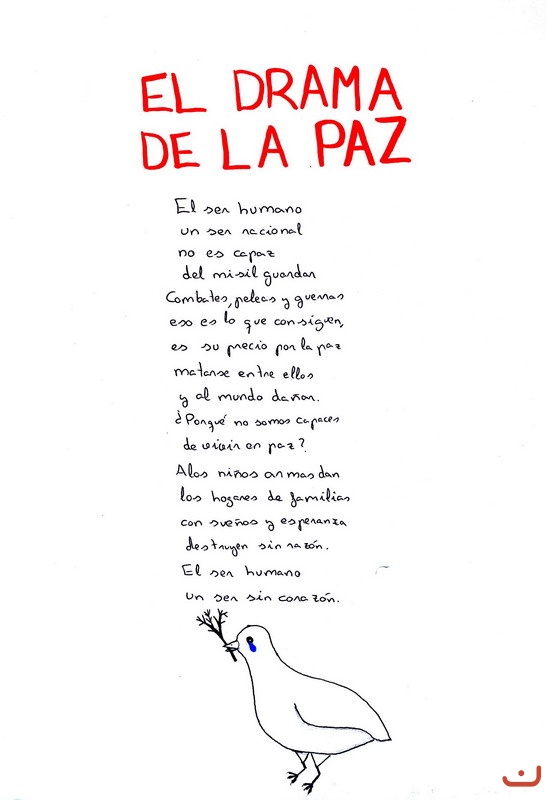 EL DRAMA
DE LA PAZ
El ser humano
un ser racional
no es capaz
del misil guardar
Combates, peleas y guerras
eso es lo que consiguen,
es su precio por la paz
matarse entre ellos
y al mundo dañar.
¿Porqué no somos capaces
de vivir en paz?
A los niños armas dan
los hogares de familias
con sueños y esperanza
destruyen sin razón.
El ser humano
un ser sin corazón.